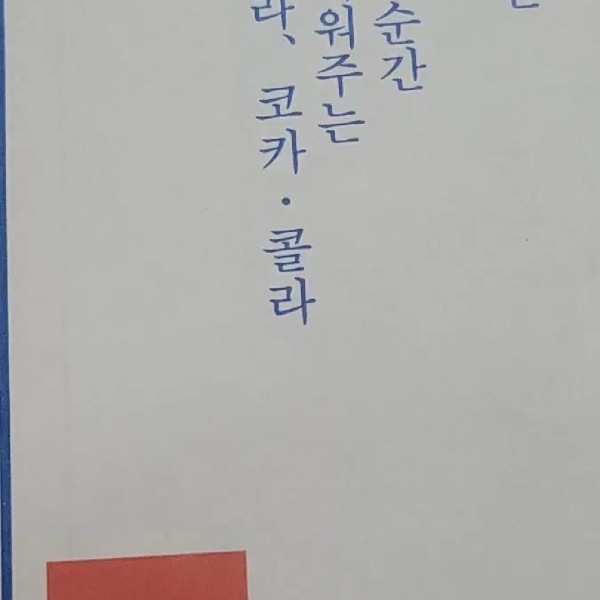 순간
워주는
라, 코카·콜라